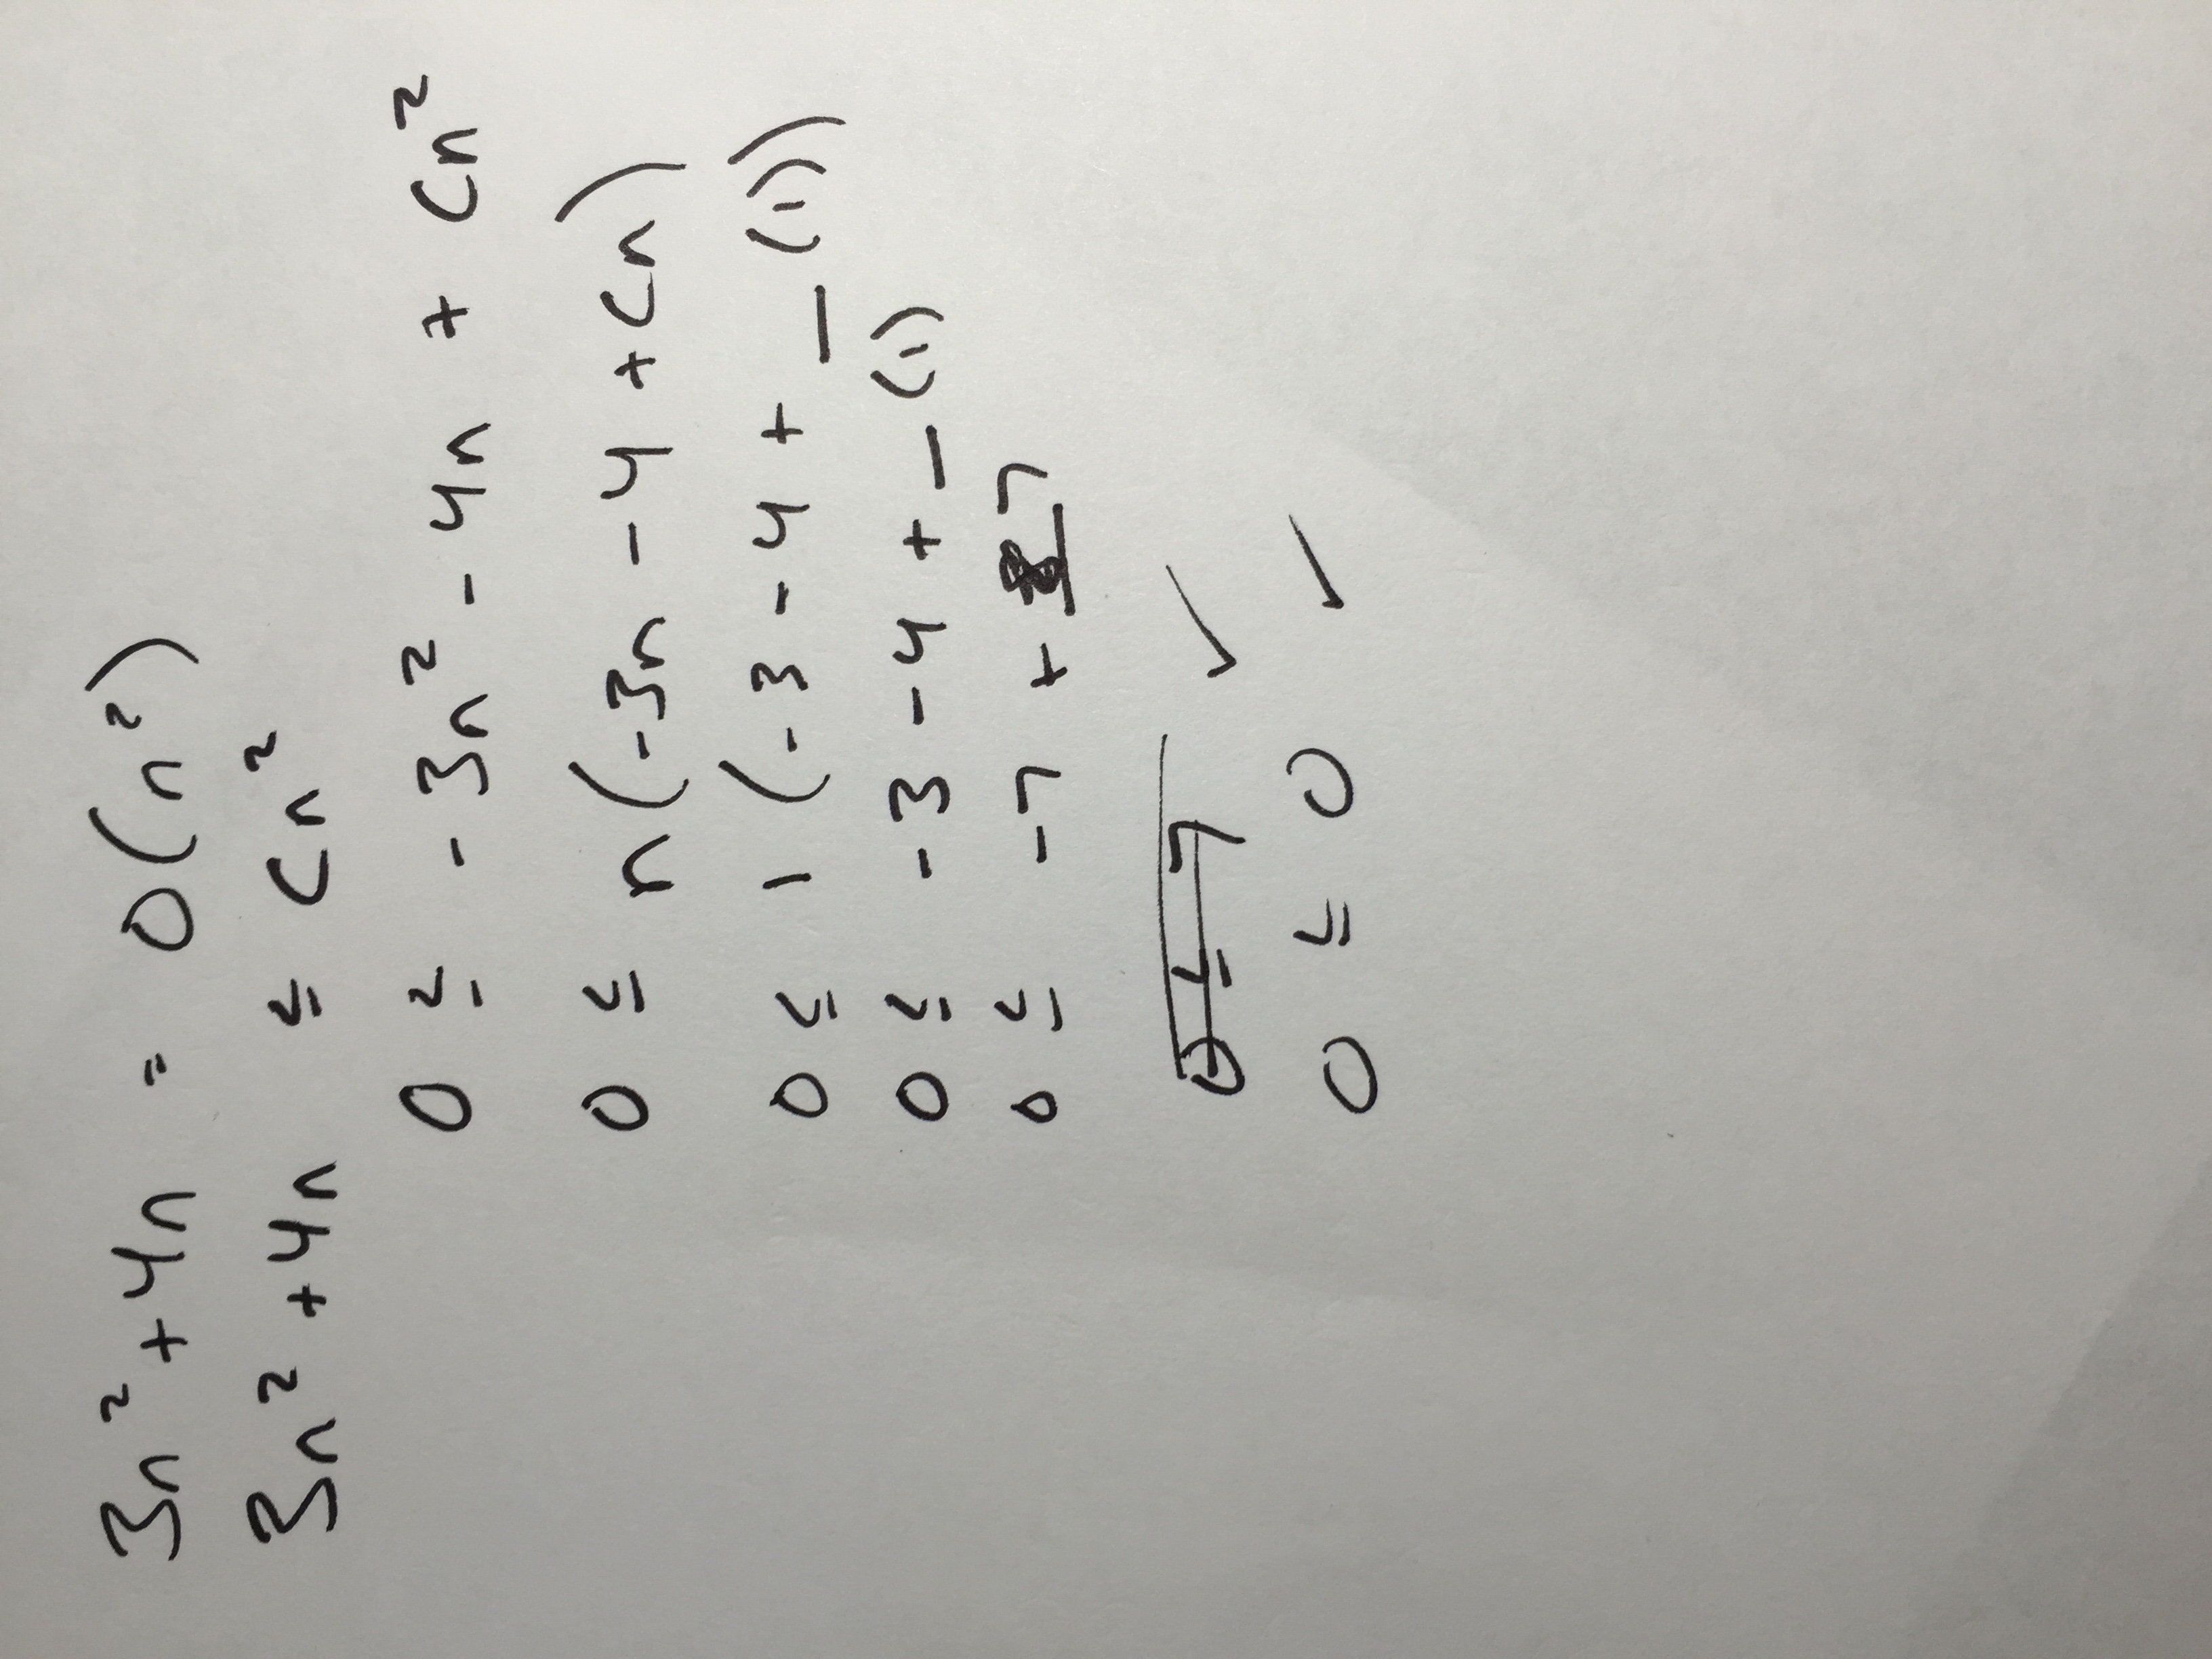 3n² + 4n = O(n²)
3n² + 4n ≤ cn²
0 ≤ -3n² - 4n + cn²
0 ≤ n(-3n - 4 + cn)
0 ≤ 1(-3 - 4 + _(1))
0 ≤ -3 - 4 + _(1)
0 ≤ -7 + 7
0 ≤ 7 ✓
0 ≤ 0